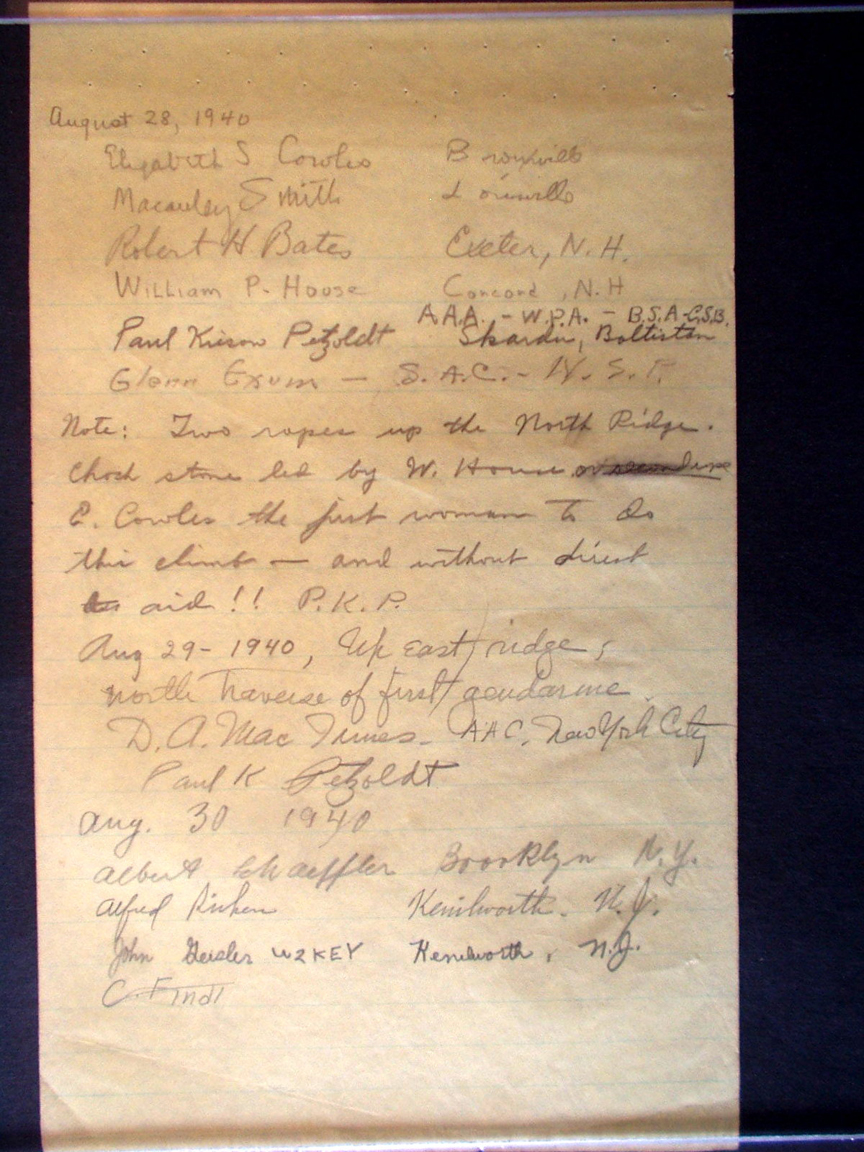 August 28, 1940
Elizabeth S Cowles Bronxville
Macauley Smith Louisville
Robert H Bates Exeter, N.H.
William P. House Concord, N.H
A.A.A. - W.P.A. - B.S.A-C.S.B.
Paul Petzoldt Skardu, Baltistan
Glenn Exum - S.A.C. -
Note: Two ropes up the North Ridge.
Chock stone led by W. House
E. Cowles the first woman to do
this climb — and without direct
aid!! P.K.P.
Aug 29- 1940, Up east ridge,
north traverse of first gendarme.
D.A. Mac Innes - AAC. New York City
Paul K Petzoldt
Aug. 30 1940
Albert Schaeffler Brooklyn N.Y.
Alfred Kenilworth. N.J.
John Geisler W2KEY Kenilworth, N.J.